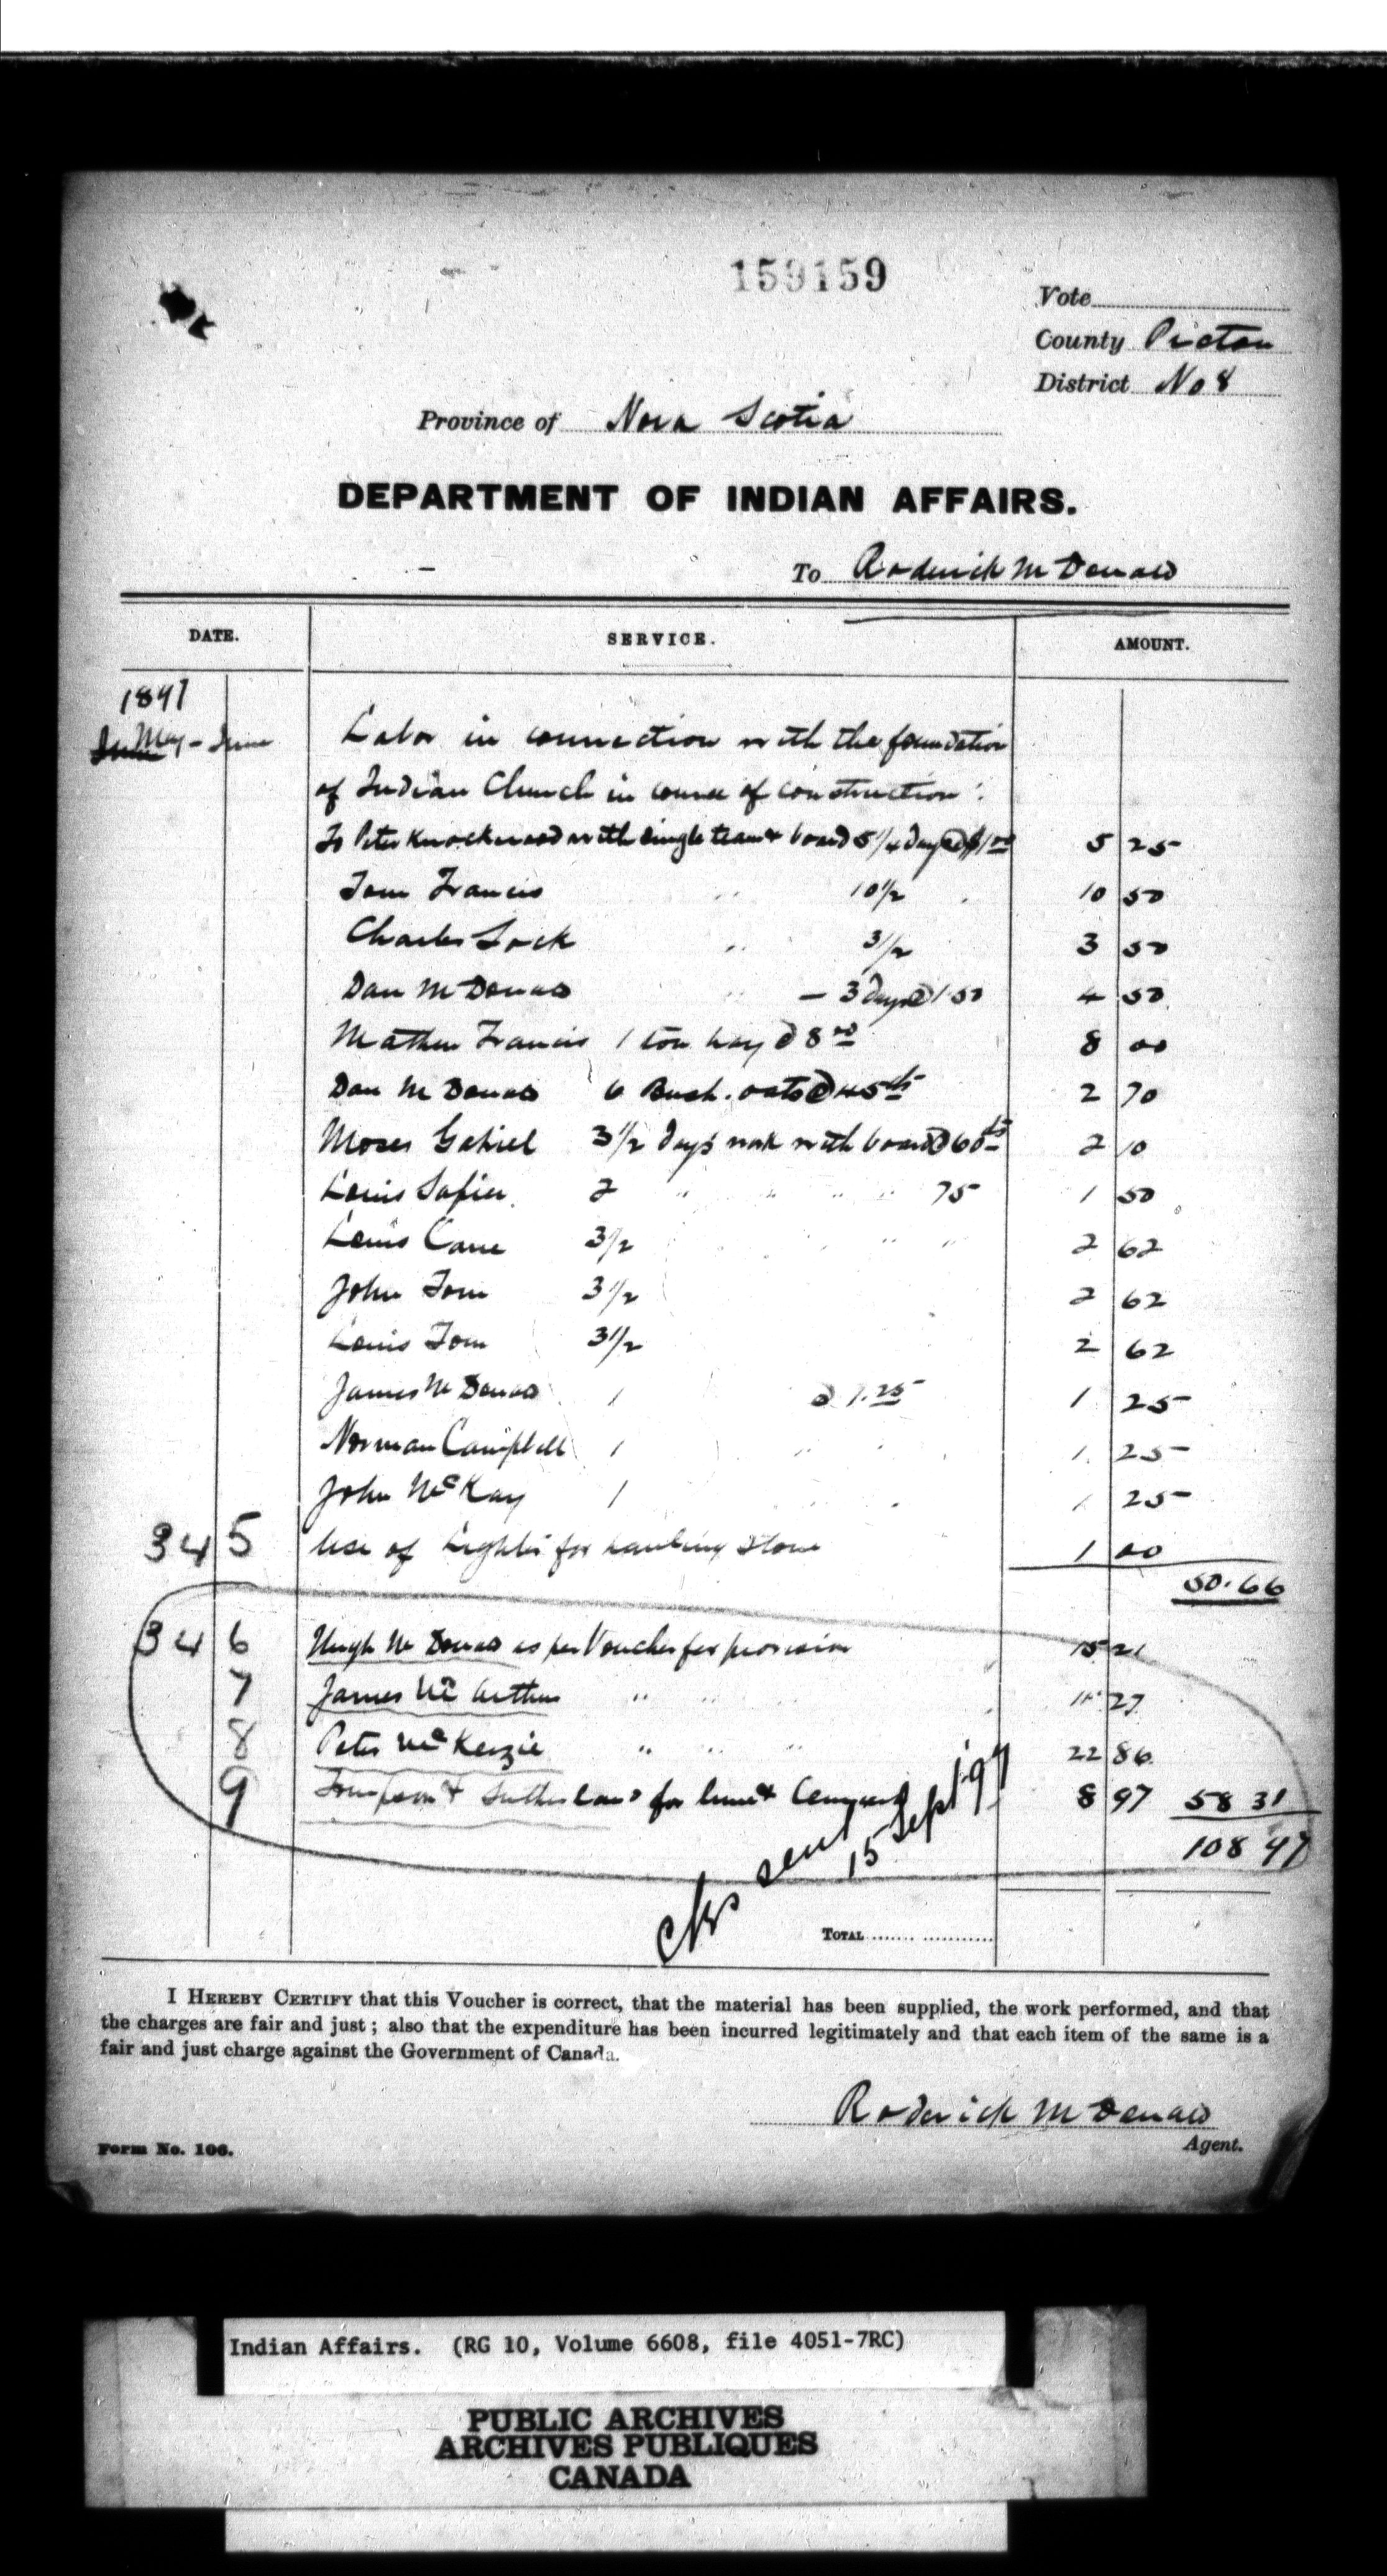 159159
Vote
County Pictou
District No 8
Province of Nova Scotia
DEPARTMENT OF INDIAN AFFAIRS.
To Roderick McDonald
DATE. SERVICE. AMOUNT.
1897
May - June Labor in connection with the foundation
of Indian Church in course of construction:
To Peter Knockwood with single team & board 5 1/4 days @ $1 00 5 25
Tom Francis " 10 1/2 10 50
Charles Lock " 3 1/2 3 50
Dan McDonald " - 3 days @ 1 50 4 50
Mathew Francis 1 ton hay @ 8 00 8 00
Dan McDonald 6 Bush. oats @ 45 cts 2 70
Moses Gabriel 3 1/2 days work with board @ 60 cts 2 10
Louis Safier 2 " " " " 75 1 50
Louis Cane 3 1/2 " " 2 62
John Tom 3 1/2 2 62
Louis Tom 3 1/2 2 62
James McDonald 1 @ 1.25 1 25
Norman Campbell 1 " " 1 25
John McKay 1 " " 1 25
345 Use of for hauling stone 1 00
50.66
346 Hugh McDonald as per Voucher for provision 15 21
7 James McArthur " " " 11 27
8 Peter McKenzie " " " 22 86
9 & Sutherland for lime & 8 97 58 31
108 97
cks sent 15 Sept 97
TOTAL
I HEREBY CERTIFY that this Voucher is correct, that the material has been supplied, the work performed, and that
the charges are fair and just; also that the expenditure has been incurred legitimately and that each item of the same is a
fair and just charge against the Government of Canada.
Roderick McDonald
Agent.
Form No. 106.
Indian Affairs. (RG 10, Volume 6608, file 4051-7RC)
PUBLIC ARCHIVES
ARCHIVES PUBLIQUES
CANADA